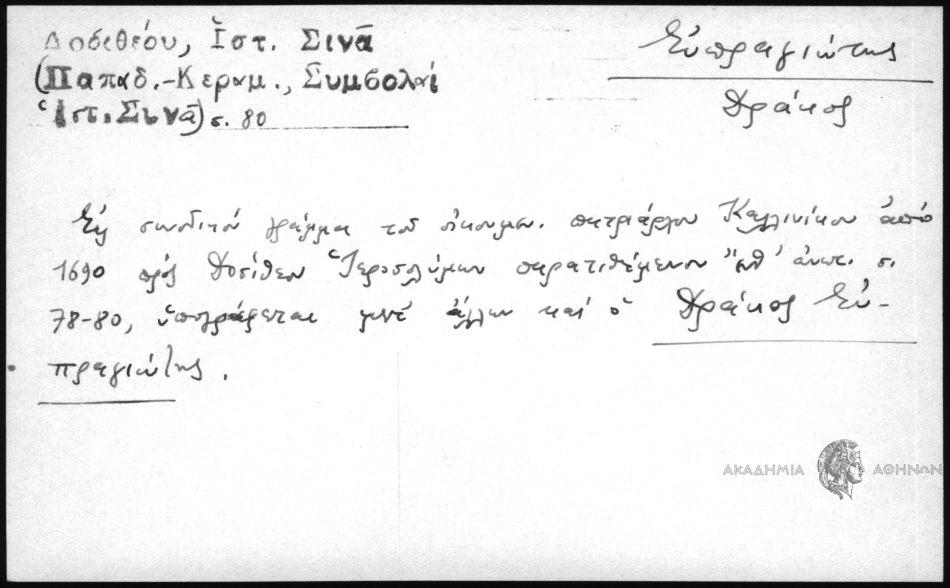 Δοσιθέου, Ἱστ. Σινᾶ
(Παπαδ.-Κεραμ., Συμβολαί
Ἱστ. Σινᾶ) σ. 80
Εὐπραγιώτης
Δράκος
Εἰς συνοδικόν γράμμα τοῦ οἰκουμεν. πατριάρχου Καλλινίκου ἀπό
1690 πρός Δοσίθεον Ἱεροσολύμων παρατιθέμενον ἀνωτ. σ.
78-80, ὑπογράφεται μετ' ἄλλων καί ὁ Δράκος Εὐ-
πραγιώτης.
ΑΚΑΔΗΜΙΑ ΑΘΗΝΩΝ